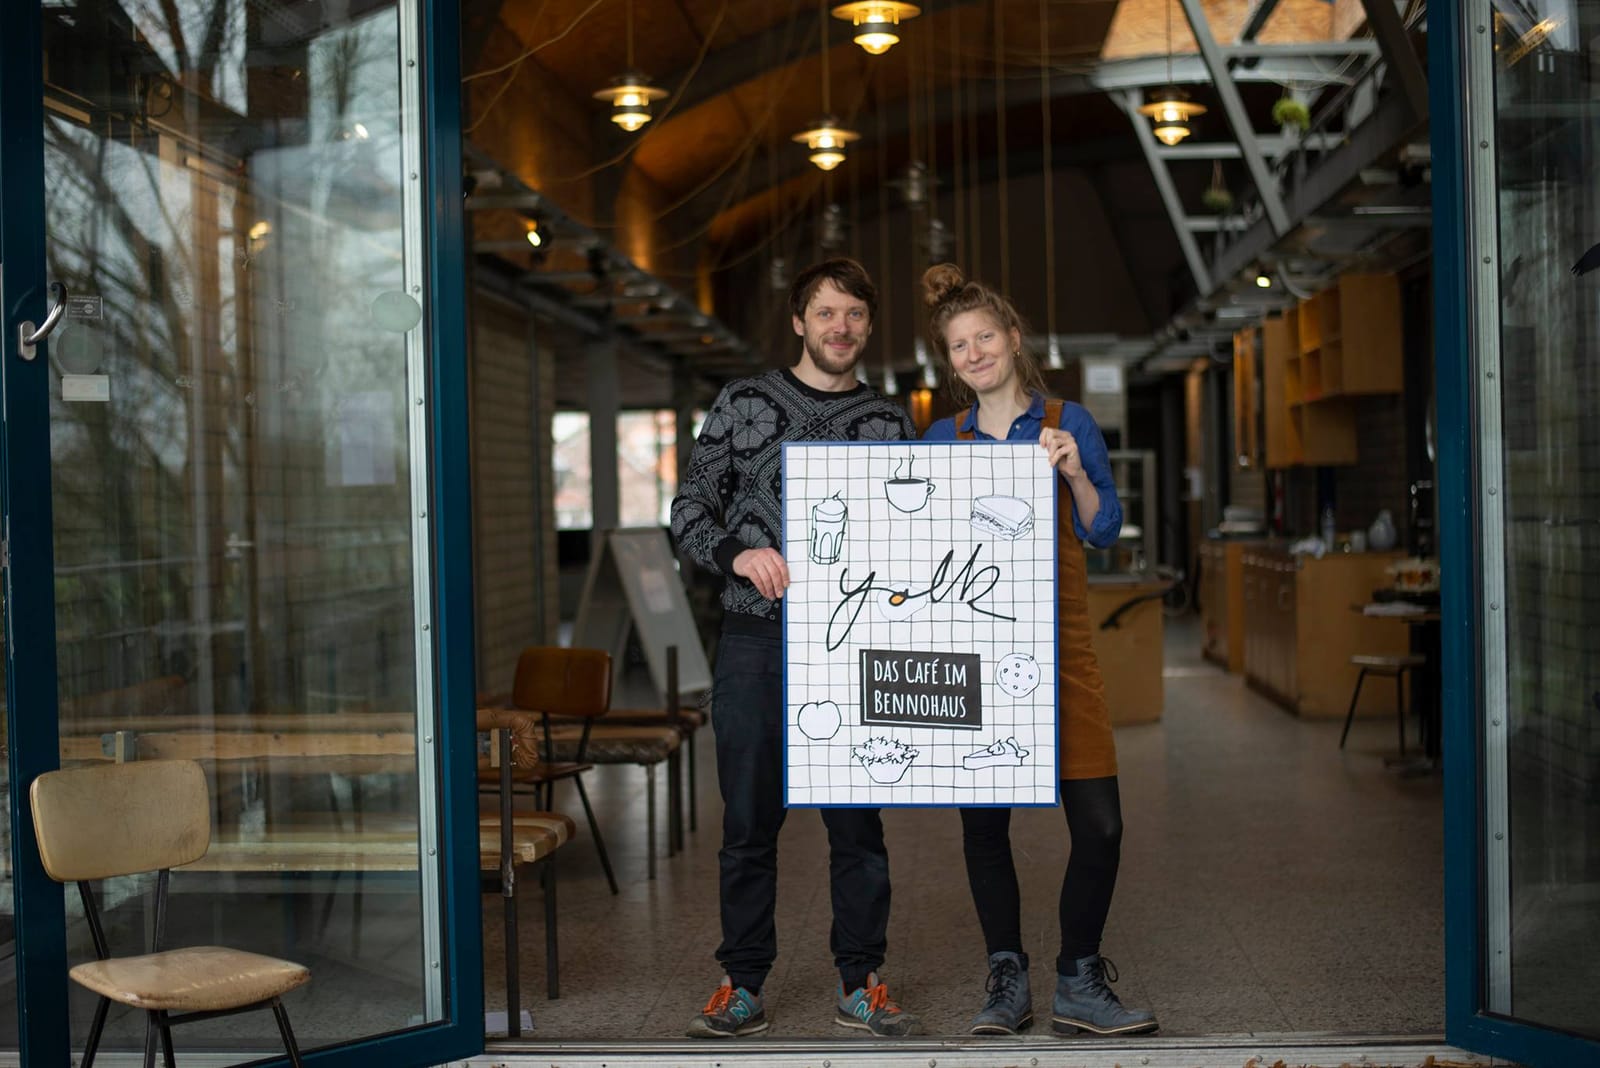 yolk
DAS CAFÉ IM
BENNOHAUS
N
N